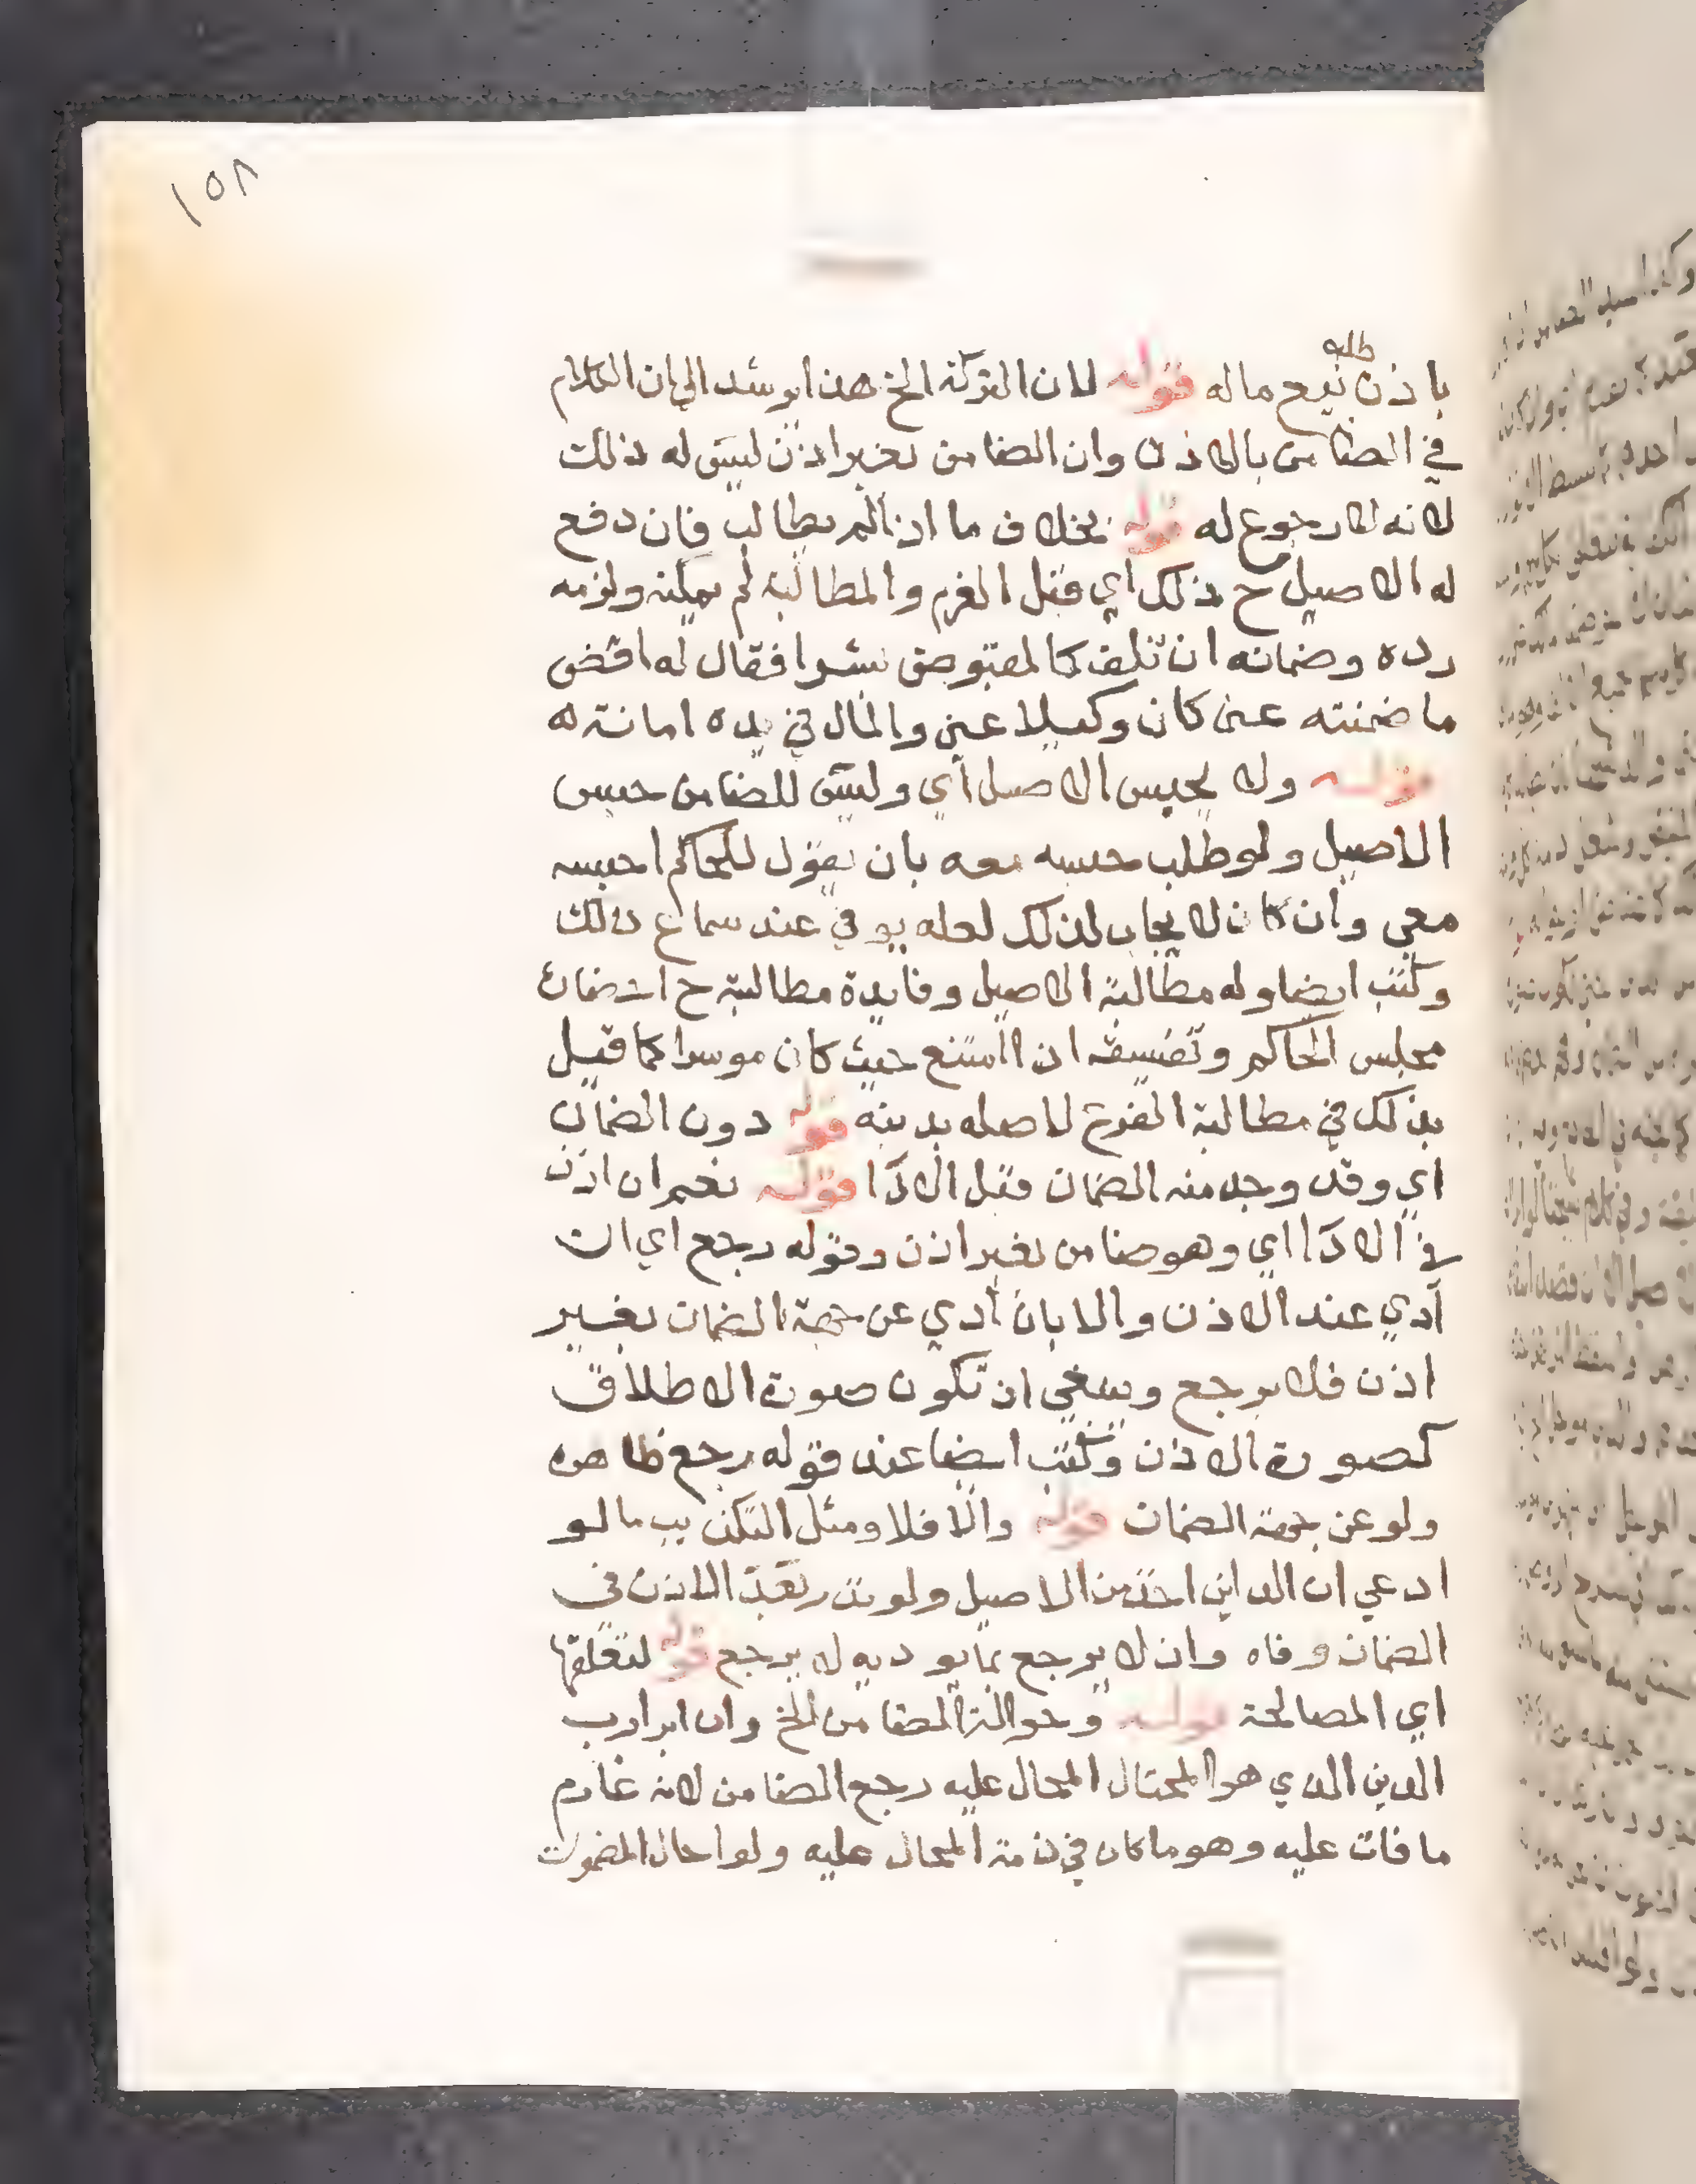 ١٥٨
طلبه
باذن بيع ماله قوله لان التركة الخ هذا يرشد الي ان الكلام
في الضامن بالاذن وان الضامن بغير اذن ليس له ذلك
لانه لا رجوع له قوله بخلاف ما اذا لم يطالب فان دفع
له الاصيل ح ذلك اي قبل الغرم والمطالبة لم يملكه ولزمه
رده وضمانه ان تلف كالمقبوض بشرا فقال له اقض
ما ضمنته عني كان وكيلا عني والمال في يده امانة له
قوله ولا يحبس الاصيل اي وليس للضامن حبس
الاصيل ولو طلب حبسه معه بان يقول للحاكم احبسه
معي وان كان لا يجاب لذلك لعله يوفي عند سماع ذلك
وكتب ايضا وله مطالبة الاصيل وفايدة مطالبته ح احضاره
مجلس الحاكم وتفسيقه اذا امتنع حيث كان موسرا كما قيل
بذلك في مطالبة الفرع لاصله بدينه قوله دون الضمان
اي وقد وجد منه الضمان قبل الادا قوله نعم ان اذن
في الادا اي وهو ضامن بغير اذن وقوله رجع اي ان
ادي عند الاذن والا بان ادي عن جهة الضمان بغير
اذن فلا يرجع وينبغي ان تكون صورة الاطلاق
كصورة الاذن وكتب ايضا عند قوله رجع ظاهره
ولو عن جهة الضمان قوله والا فلا ومثل التكذيب ما لو
ادعي ان الداين اخذ من الاصيل ولو بقدر الاذن في
الضمان وفاه وان لا يرجع بما يوديه لا يرجع قوله لتعلقها
اي المصالحة قوله وحوالة الضامن الخ وان ابرا رب
الدين الذي هو المحتال المحال عليه رجع الضامن لانه غارم
ما فات عليه وهو ما كان في ذمة المحال عليه ولو احال المضمون